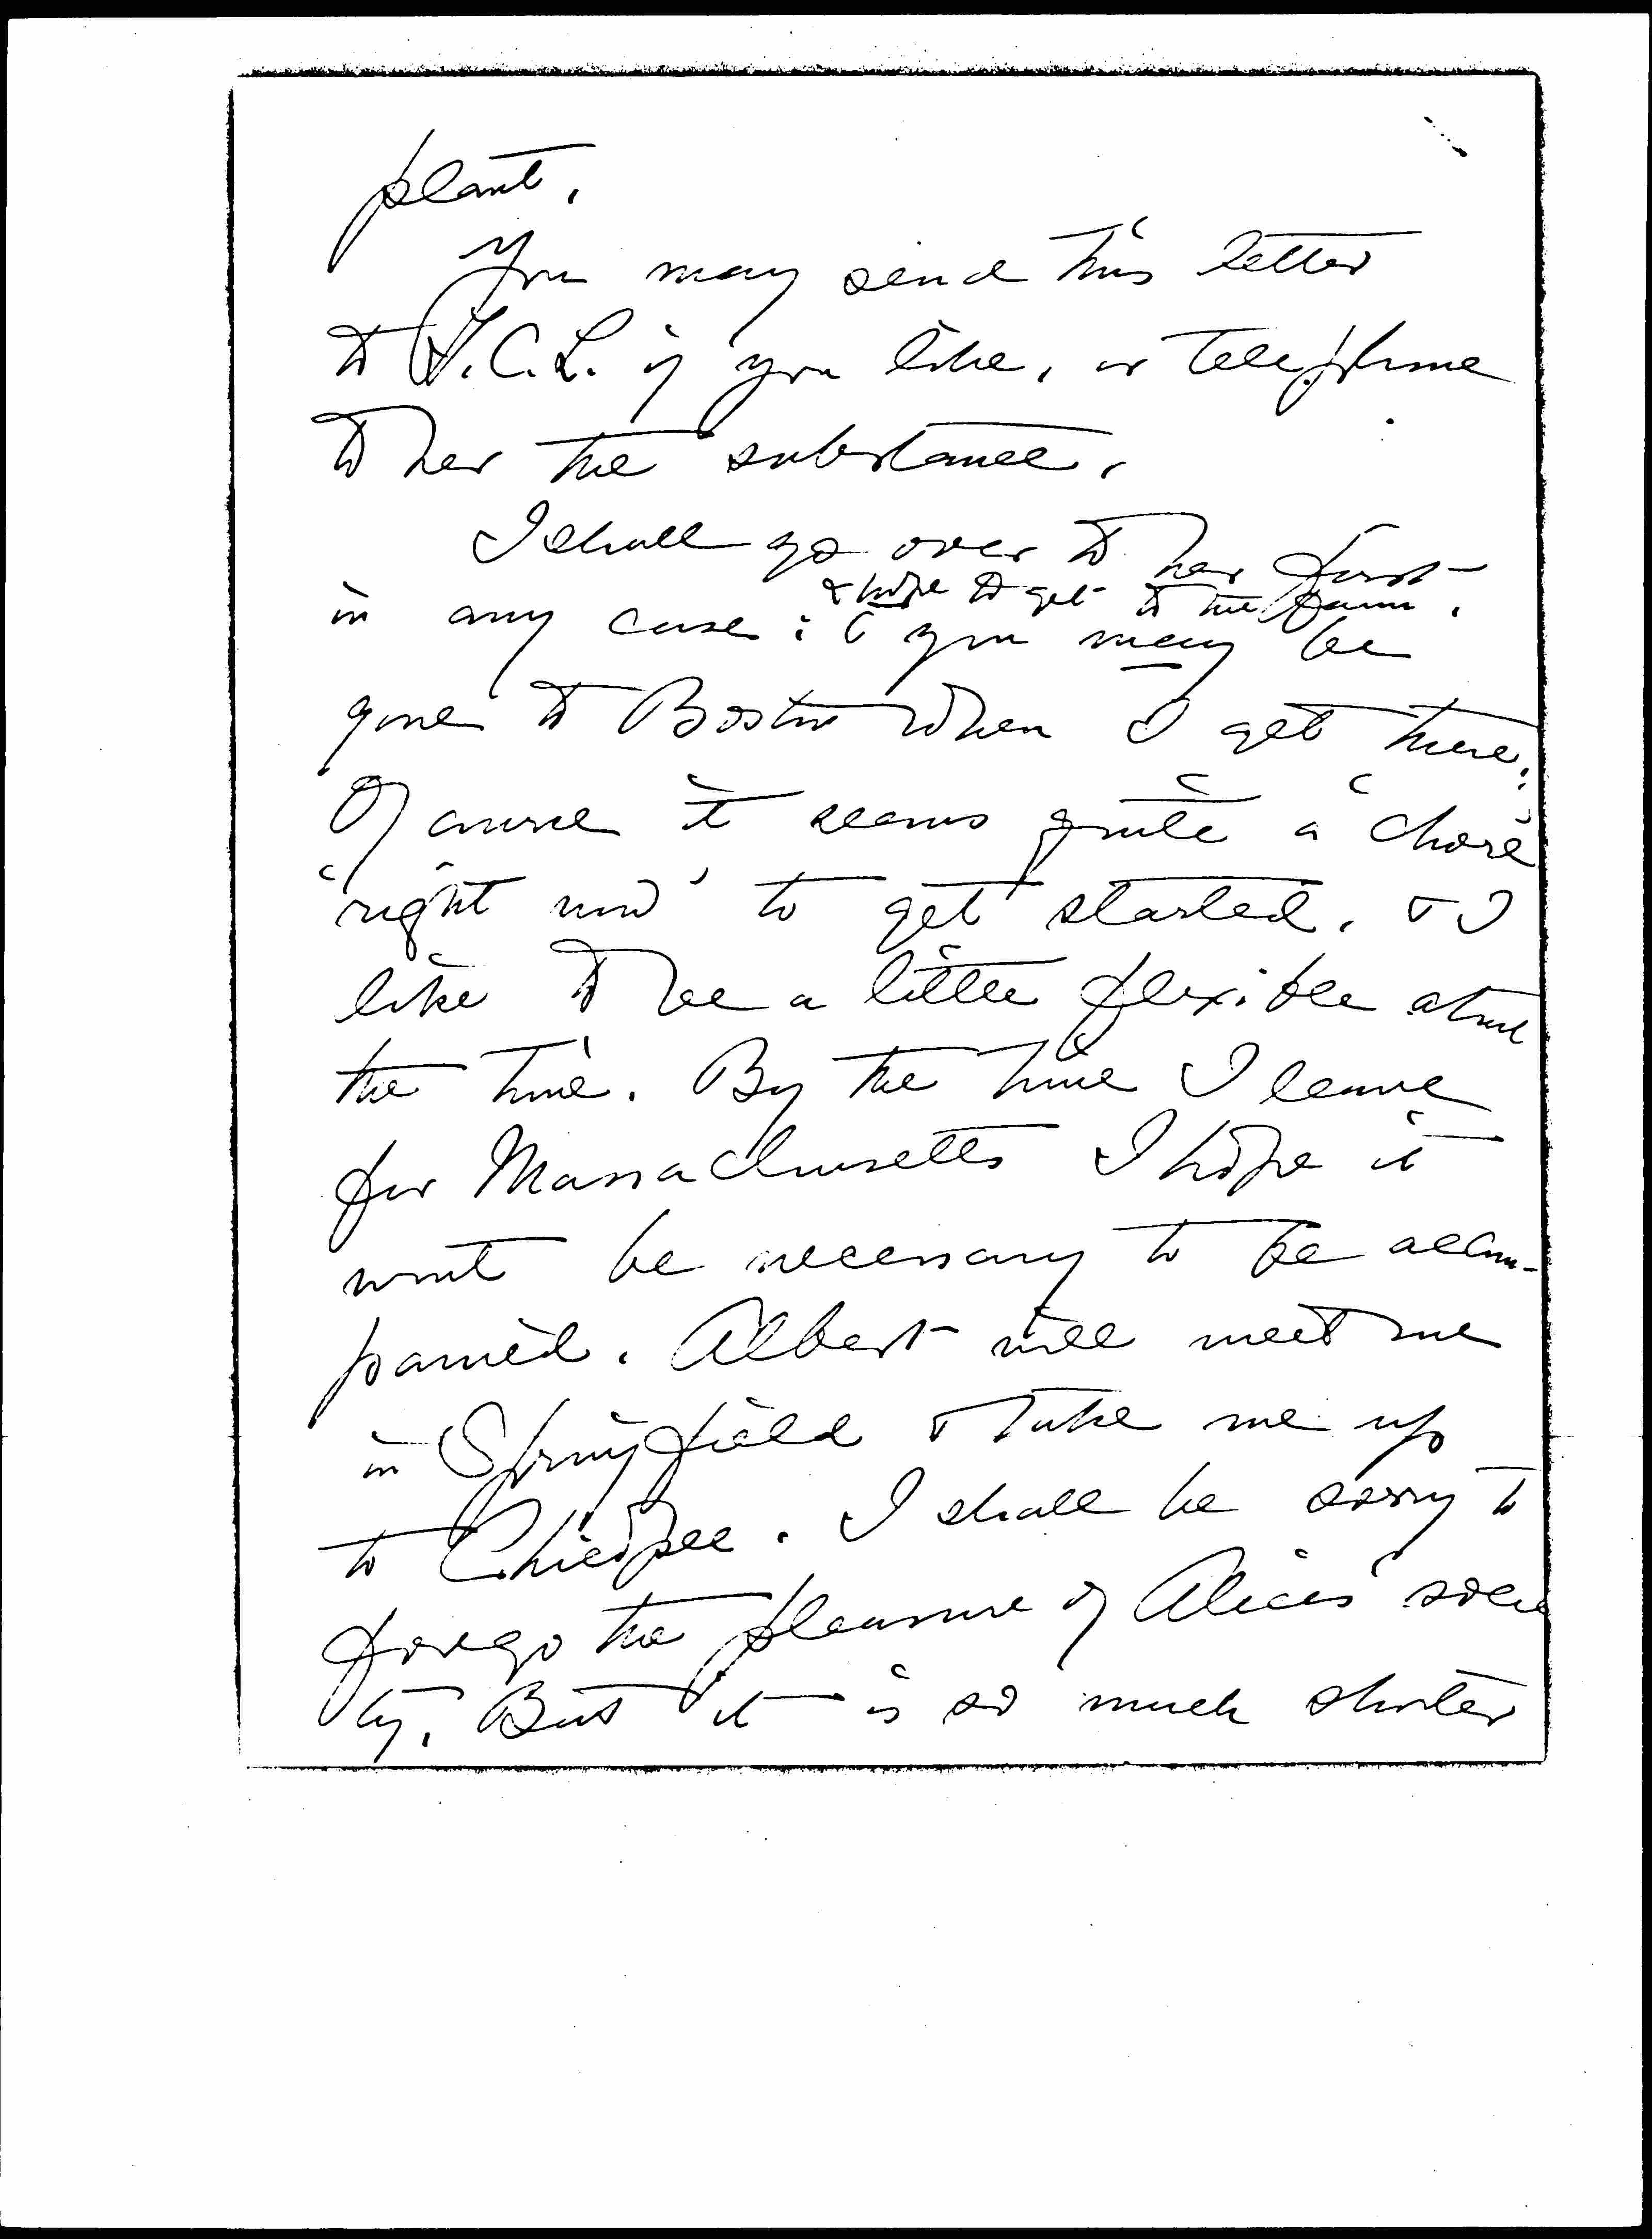 plant.
You may send this letter
to F.C.L. if you like, or telephone
to her the substance.
I shall go over to her first
& hope to get to the farm.
in any case: you may be
gone to Boston when I get there.
Of course it seems quite a "chore"
"right now" to get started. & I
like to be a little flexible about
the time. By the time I leave
for Massachusetts I hope it
wont be necessary to be accom-
panied. Albert will meet me
in Springfield & take me up
to Chicopee. I shall be sorry to
forego the pleasure of Alice's socie
ty. But it is so much shorter